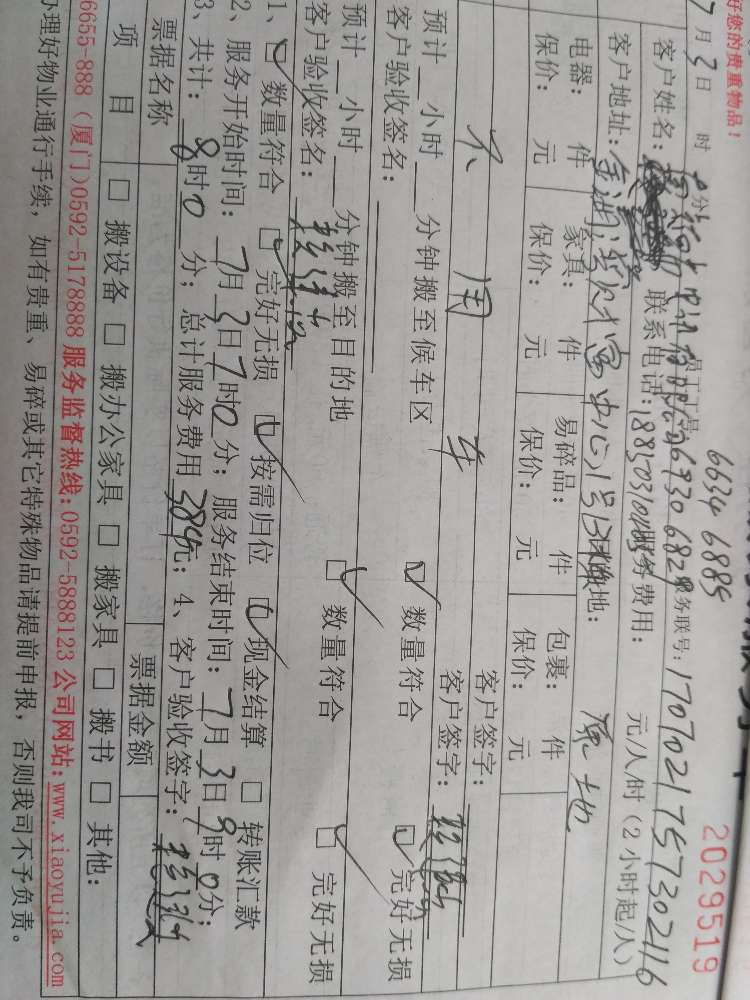 好您的贵重物品！
2029519
6634 6885
7月3日 时 分 6930 6829 服务联号：1707021757302116
客户姓名： 联系电话： 服务费用： 元/人/时（2小时起/人）
客户地址：金湖 财富中心1号 地： 原地
电器： 件 家具： 件 易碎品： 件 包裹： 件
保价： 元 保价： 元 保价： 元 保价： 元
不 用 车
客户签字：
客户签字：
预计 小时 分钟搬至候车区 数量符合 完好无损
客户验收签名：
预计 小时 分钟搬至目的地 数量符合 完好无损
客户验收签名：
1、 数量符合 完好无损 按需归位 现金结算 转账汇款
2、服务开始时间：7月3日7时0分；服务结束时间：7月3日9时0分；
3、共计：8时0分；总计服务费用384元；4、客户验收签字：
票据名称 票据金额
项 目 搬设备 搬办公家具 搬家具 搬书 其他：
6655-888（厦门）0592-5178888 服务监督热线:0592-5888123 公司网站:www.xiaoyujia.com
办理好物业通行手续，如有贵重、易碎或其它特殊物品请提前申报，否则我司不予负责。